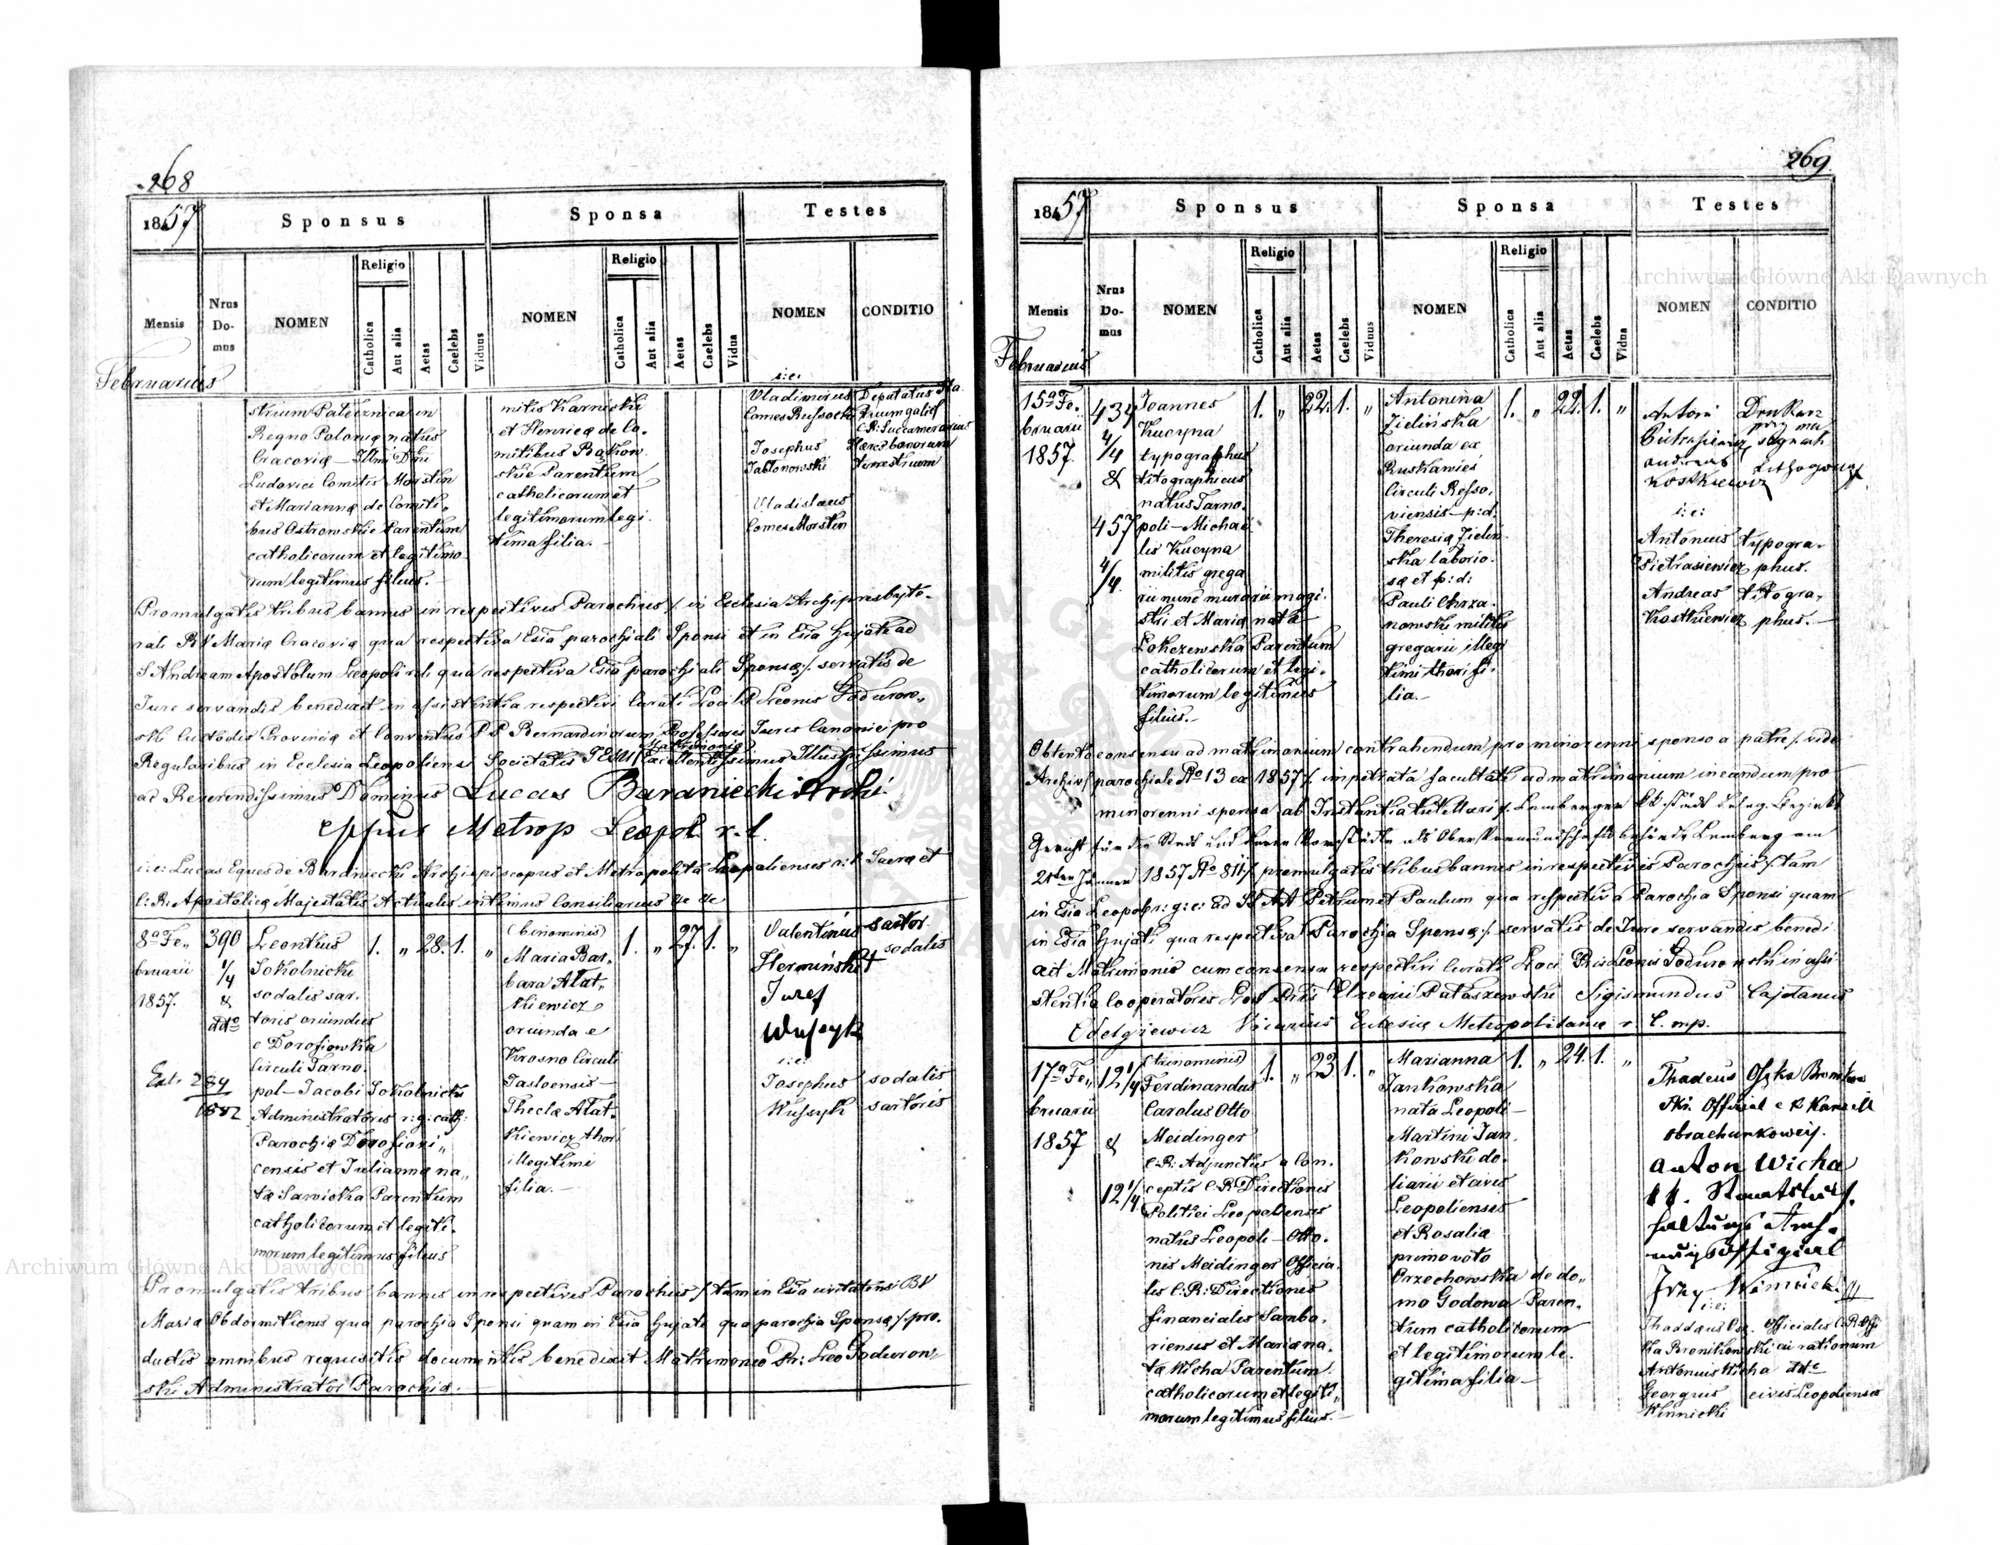 268
1857
Sponsus
Sponsa
Testes
Mensis
Nrus Domus
NOMEN
Religio
Catholica
Aut alia
Aetas
Caelebs
Viduus
NOMEN
Religio
Catholica
Aut alia
Aetas
Caelebs
Vidua
NOMEN
CONDITIO
Februarius
strium Patecznica in
Regno Poloniæ natus
Cracoviæ – Illmi Dni
Ludovici Comitis Morstin
et Mariannæ de Comiti-
bus Ostrowskie Parentum
catholicorum et legitimo
rum legitimus filius.
mitis Karnicki
et Henricæ de Co-
mitibus Bąkow
skie Parentum
catholicorum et
legitimorum legi
tima filia.
i:e:
Vladimirus Deputatus Sta
Comes Russocki
C:R: Succamerarius
Josephus Hæres bonorum
Jabłonowski terrestrium
Vladislaus
Comes Morstin
Promulgatis tribus bannis in respectivis Parochiis /: in Ecclesia Archipresbyte-
rali B.V. Mariæ Cracoviæ qua respectiva Ecclia parochiali Sponsi et in Ecclia hujate ad
S. Andream Apostolum Leopoli r:l: qua respectiva Ecclia parochiali Sponsæ /: servatis de
Jure servandis benedixit in assistentia respectivi Curati Loci P. Leonis Godurow-
ski Custodis Provinciæ et Conventus P.P. Bernardinorum, Professoris Juris Canonici pro
Matrimonio
Regularibus in Ecclesia Leopoliens Societatis JESU Excellentissimus Illustrissimus
ac Reverendissimus Dominus Lucas Baraniecki Archi
eppus Metrop Leopol r.l.
i:e: Lucas Eques de Baraniecki Archiepiscopus et Metropolita Leopoliensis r:l: Sacræ et
C:R: Apostolicæ Majestatis Actualis intimus Consiliarius &c &c
8a Fe-
bruarii
1857.
390
1/4
&
dto
Leontius
Sokolnicki
sodalis sar-
toris oriundus
e Dorofiowka
Circuli Tarno-
pol – Jacobi Sokolnicki
Administratoris r:g: cath:
Parochiæ Dorofiowi-
censis et Julianna na-
tæ Sawicka Parentum
catholicorum et legiti-
morum legitimus filius
1. " 28. 1. "
(binominis)
Maria Bar-
bara Ałat-
kiewicz
oriunda e
Krosno Circuli
Jasloensis –
Theclæ Ałat-
kiewicz thori
illegitimi
filia.
1. " 27. 1. "
Valentinus sartor
Hermiński sodalis
Jusef
Wusyk
i:e:
Josephus sodalis
Wusyk sartoris
Ext. 289
1882
Promulgatis tribus bannis in respectivis Parochiis /: tam in Ecclia civitatensi BV
Mariæ Obdormitionis qua parochia Sponsi quam in Ecclia hujate qua parochia Sponsæ /: pro-
ductis omnibus requisitis documentis benedixit Matrimonio Pr: Leo Goduron-
ski Administrator Parochiæ.
269.
1857
Sponsus
Sponsa
Testes
Mensis
Nrus Domus
NOMEN
Religio
Catholica
Aut alia
Aetas
Caelebs
Viduus
NOMEN
Religio
Catholica
Aut alia
Aetas
Caelebs
Vidua
NOMEN
CONDITIO
Februarius
15a Fe-
bruarii
1857.
434
4/4
&
457
4/4
Joannes
Kucyna
typographus
litographicus
natus Tarno-
poli – Michae
lis Kucyna
militis grega
rii nunc murarii magi-
stri et Maria nata
Łokczewska Parentum
catholicorum et legi-
timorum legitimus
filius.
1. " 22. 1. "
Antonina
Zielińska
oriunda ex
Ruskawieś
Circuli Resso-
viensis – p:d:
Theresiæ Zieliń
ska laborio-
sæ et p:d:
Pauli Chrza-
nowski militis
gregarii illegi
timi thori fi-
lia.
1. " 22. 1. "
Antoni Drukarz
Pietrasiewicz
Andreas Lithograf
Kostkiewicz
i:e:
Antonius typogra-
Pietrasiewicz phus.
Andreas litogra-
Kostkiewicz phus.
Obtento consensu ad matrimonium contrahendum pro minorenni sponso a patre /: vide
Archiv parochiale No 13 ex 1857 /: impetrata facultate ad matrimonium ineundum pro
minorenni sponsa ab Instantia tut. Lemberger kk städt deleg. Bezirks
Gericht für die Stadt und deren Vorstädte als Ober Vormundschaftsbehörde Lemberg am
Jänner 1857 No 811 /: promulgatis tribus bannis in respectivis Parochiis /: tam
in Ecclia Leopol: r:g:c: ad SS. AA. Petrum et Paulum qua respectiva Parochia Sponsi quam
in Ecclia hujati qua respectiva Parochia Sponsæ /: servatis de Jure servandis benedi
xit Matrimonio cum consensu respectivi Curati Loci Pris Leonis Goduronski in assi
stentia Cooperatoris Loci Pris Elzearii Pataszewski Sigismundus Cajetanus
Odelgiewicz Vicarius Ecclesiæ Metropolitanæ r. l. mp.
17a Fe-
bruarii
1857
12 1/4
&
12 1/4
(trinominis)
Ferdinandus
Carolus Otto
Meidinger
C:R: Adjunctus a Con-
ceptis C:R: Directionis
Politiei Leopoliensis
natus Leopoli – Otto-
nis Meidinger Officia-
lis C:R: Directionis
financialis Sambo-
riensis et Maria na-
tæ Wicha Parentum
catholicorum et legiti-
morum legitimus filius.
1. " 23 1. "
Marianna
Jankowska
nata Leopoli –
Martini Jan-
kowski do-
liarii et civis
Leopoliensis
et Rosalia
primo voto
Orzechowska de do-
mo Godowa Paren-
tum catholicorum
et legitimorum le-
gitima filia –
1. " 24. 1. "
Thadeus Oska Bronikow
ski Official c k Kancell
obrachunkowej.
Anton Wicha
kk. Staatsbuch-
haltungs
official
Jrzy Winnicki
i:e:
Thaddæus Os- Officialis C:R: Offi
ka Bronikowski cii rationum
Antonius Wicha dto
Georgius civis Leopoliensis
Winnicki
Archiwum Główne Akt Dawnych
Archiwum Główne Akt Dawnych